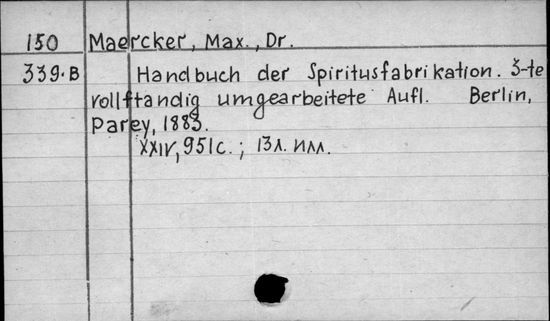 150 Maercker, Max., Dr.
339.B Handbuch der Spiritusfabrikation. 3-te
vollftandig umgearbeitete Aufl. Berlin,
Parey, 1883.
XXIV, 951с.; 13л. илл.